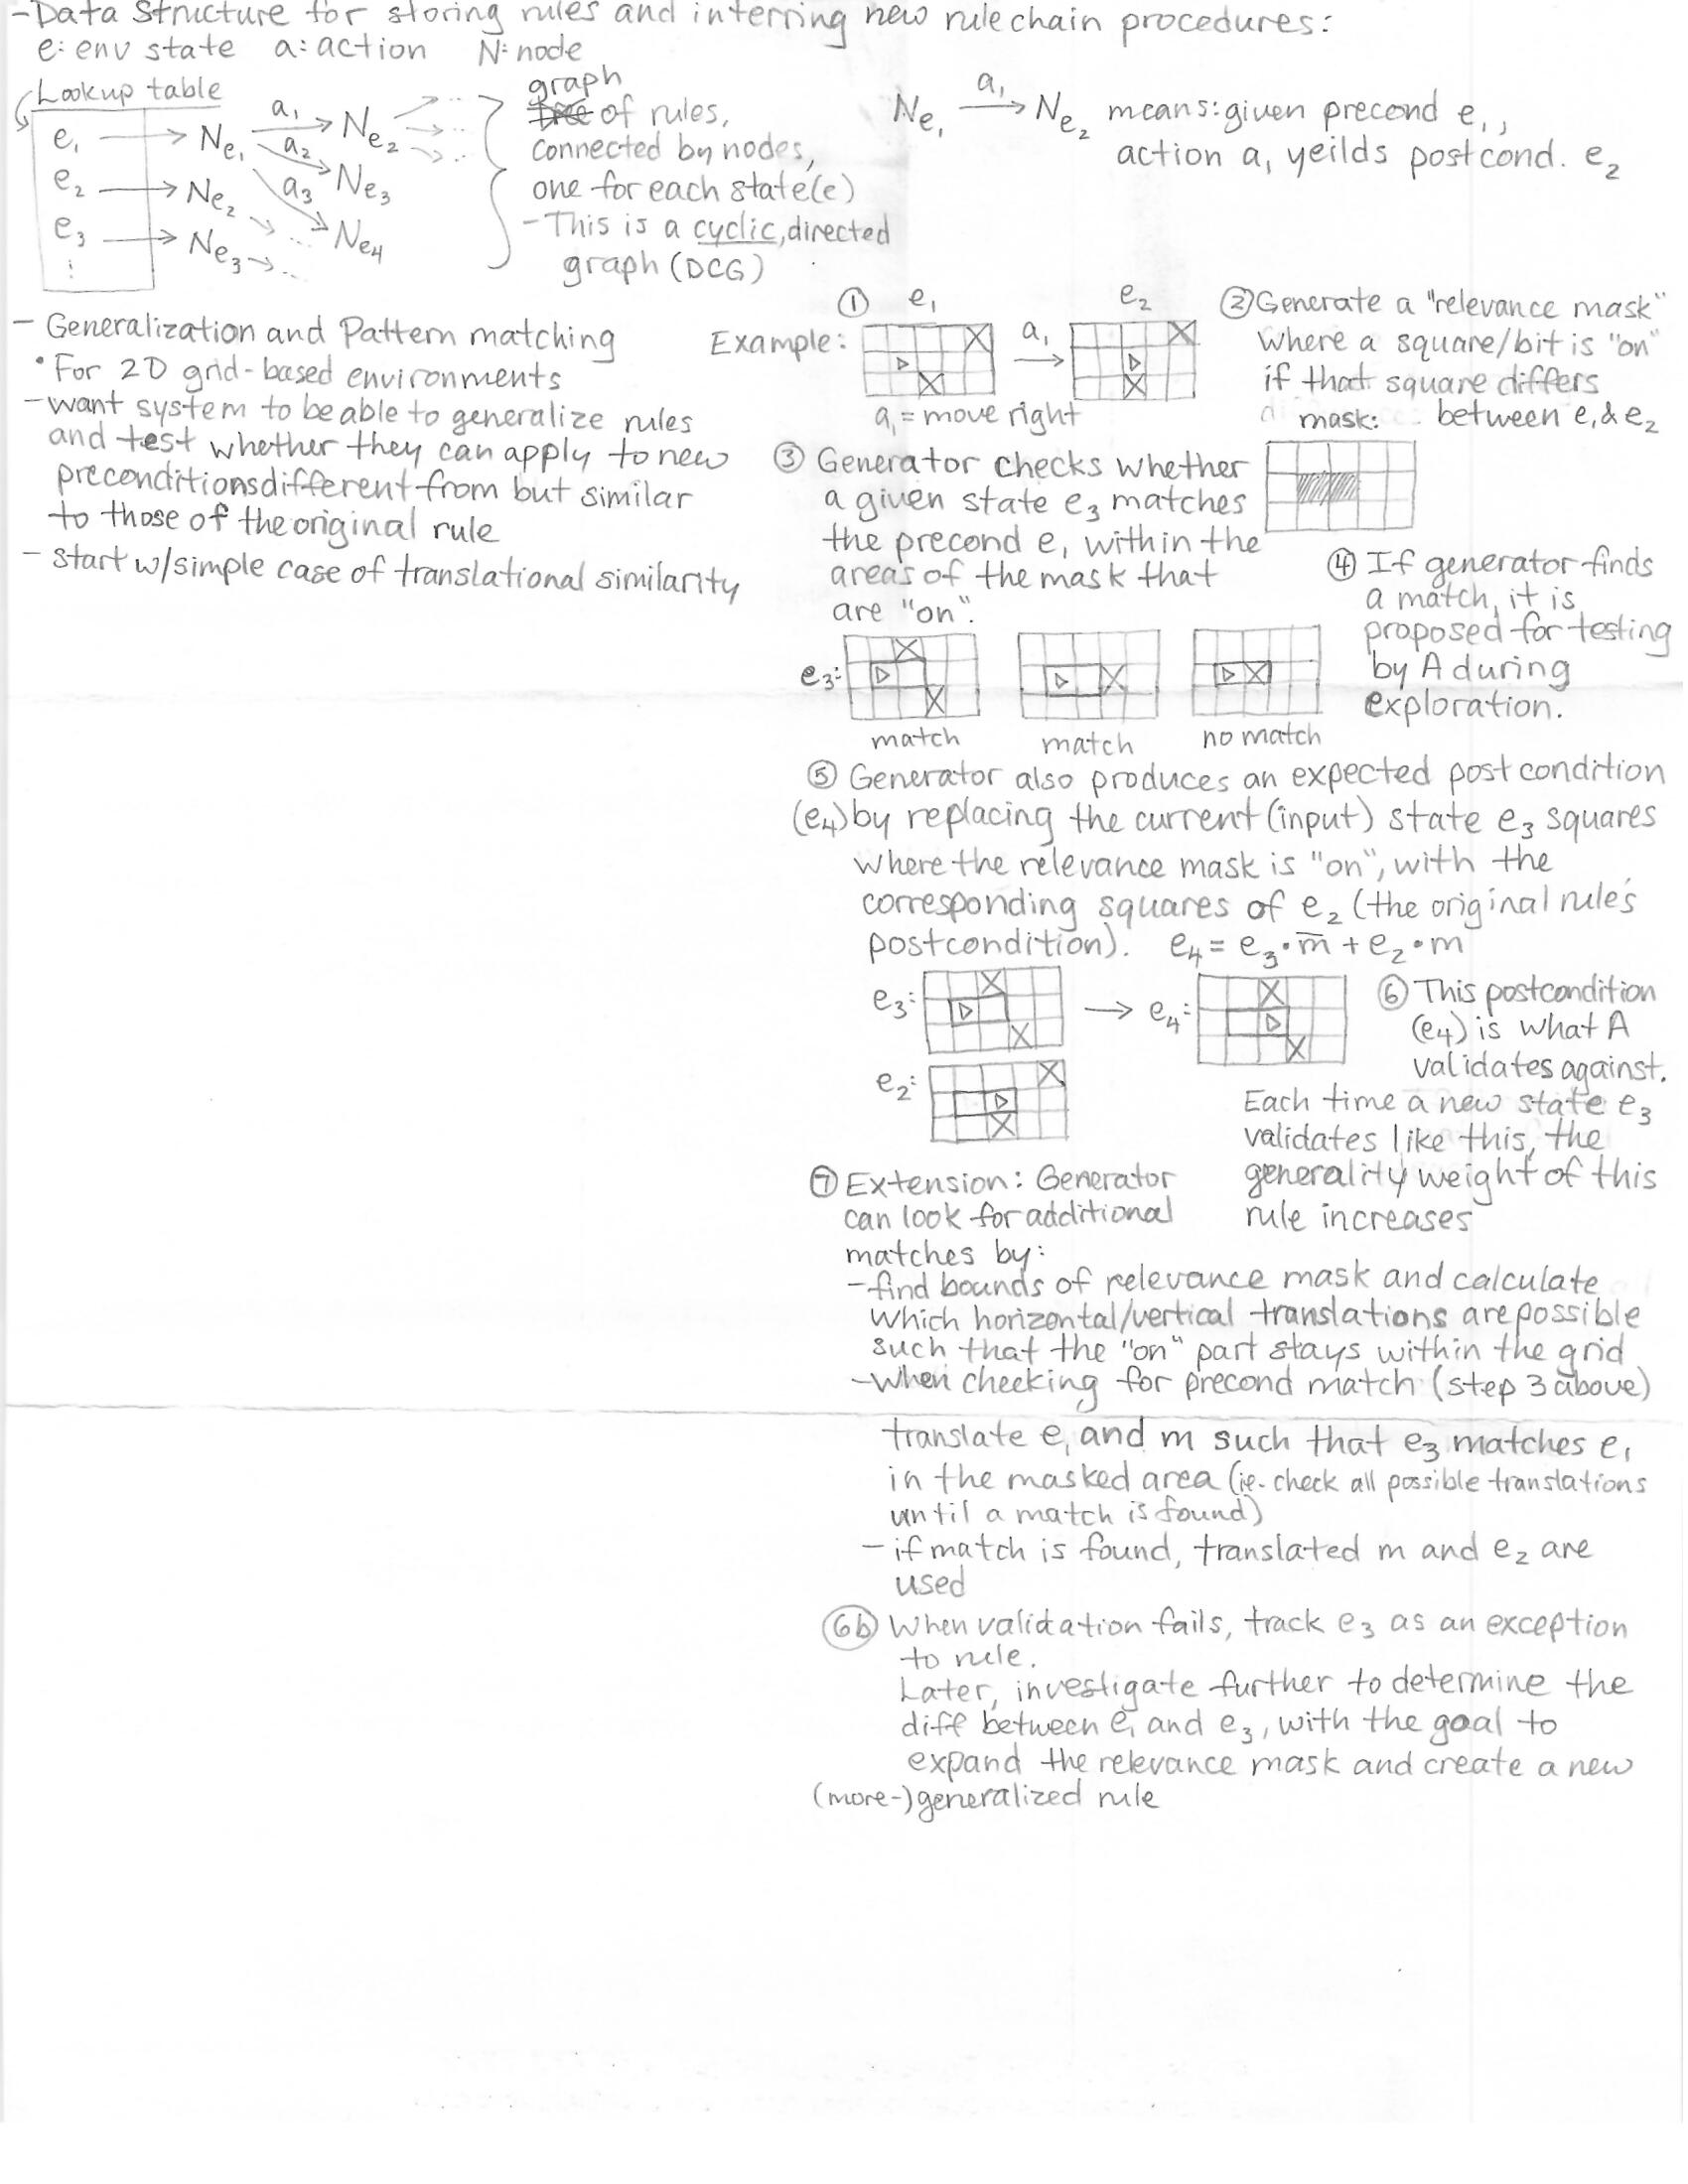 -Data Structure for storing rules and inferring new rule chain procedures:
e: env state a: action N: node
Lookup table
e1 → Ne1 a1 → Ne2 → ...
a2 → Ne3
a3 → Ne4
e2 → Ne2 → ...
e3 → Ne3 → ...
⋮
graph
of rules,
connected by nodes,
one for each state(e)
- This is a cyclic, directed
graph (DCG)
Ne1 a1→ Ne2 means: given precond e1,
action a1 yeilds postcond. e2
- Generalization and Pattern matching
• For 2D grid-based environments
- want system to be able to generalize rules
and test whether they can apply to new
preconditions different from but similar
to those of the original rule
- start w/simple case of translational similarity
Example:
① e1 a1→ e2
a1 = move right
② Generate a "relevance mask"
where a square/bit is "on"
if that square differs
between e1 & e2
mask:
③ Generator checks whether
a given state e3 matches
the precond e1 within the
areas of the mask that
are "on".
e3:
match match no match
④ If generator finds
a match, it is
proposed for testing
by A during
exploration.
⑤ Generator also produces an expected post condition
(e4) by replacing the current (input) state e3 squares
where the relevance mask is "on", with the
corresponding squares of e2 (the original rule's
postcondition). e4 = e3 • m̅ + e2 • m
e3: → e4:
e2:
⑥ This postcondition
(e4) is what A
validates against.
Each time a new state e3
validates like this, the
generality weight of this
rule increases
⑦ Extension: Generator
can look for additional
matches by:
- find bounds of relevance mask and calculate
which horizontal/vertical translations are possible
such that the "on" part stays within the grid
- when checking for precond match (step 3 above)
translate e1 and m such that e3 matches e1
in the masked area (ie. check all possible translations
until a match is found)
- if match is found, translated m and e2 are
used
(6b) When validation fails, track e3 as an exception
to rule.
Later, investigate further to determine the
diff between e1 and e3, with the goal to
expand the relevance mask and create a new
(more-) generalized rule